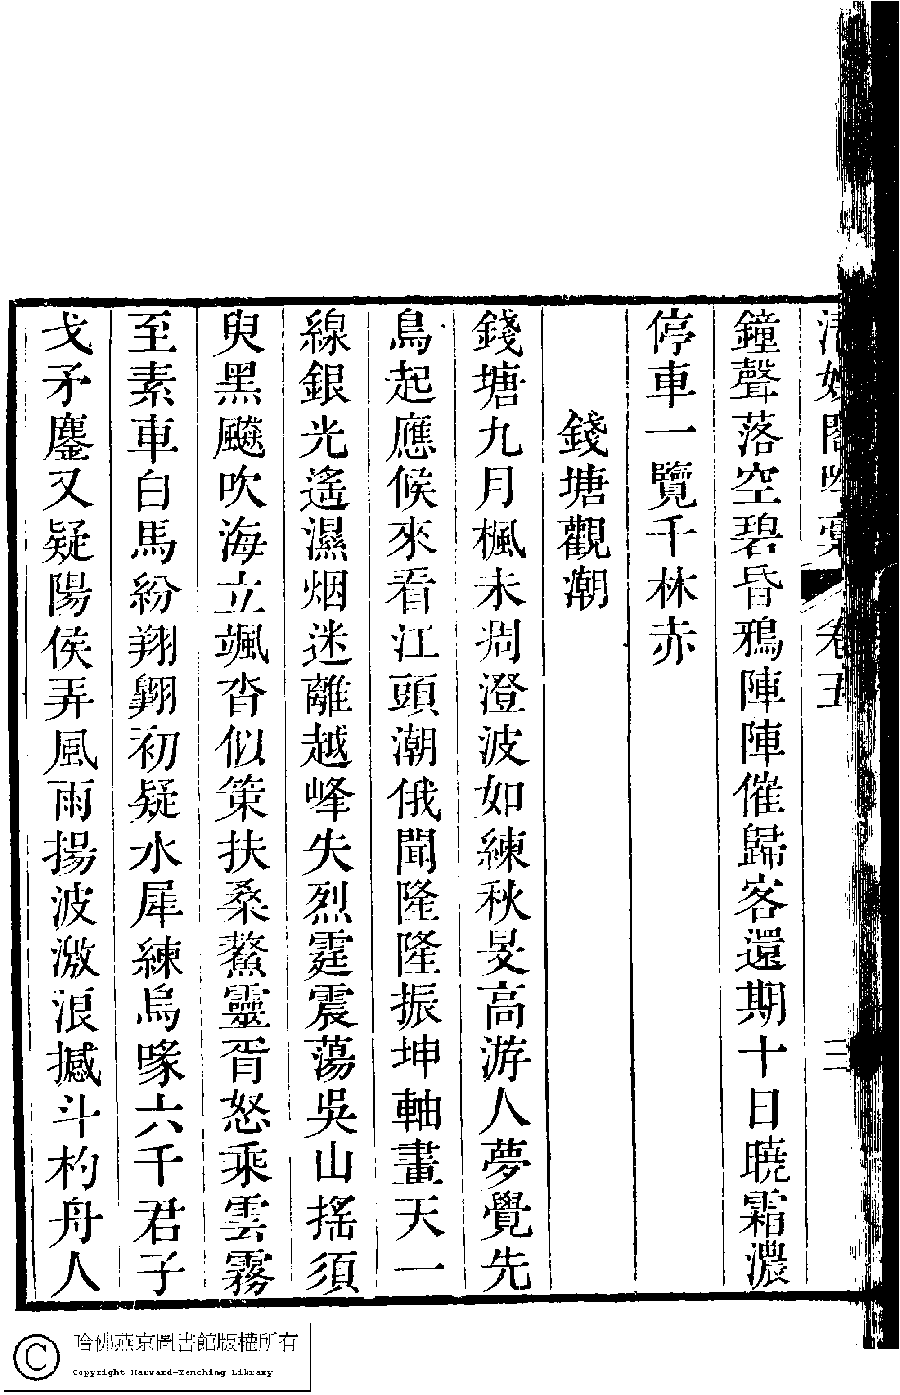 清娛閣吟稾 卷五 三
鐘聲落空碧昏鴉陣陣催歸客還期十日曉霜濃
停車一覽千林赤
錢塘觀潮
錢塘九月楓未凋澄波如練秋旻高游人夢覺先
鳥起應候來看江頭潮俄聞隆隆振坤軸畫天一
線銀光遙濕烟迷離越峰失烈霆震蕩吳山搖須
臾黑飈吹海立颯沓似策扶桑鰲靈胥怒乘雲霧
至素車白馬紛翔翺初疑水犀練烏喙六千君子
戈矛鏖又疑陽侯弄風雨揚波激浪撼斗杓舟人
哈佛燕京圖書館版權所有
Copyright Harvard-Yenching Library